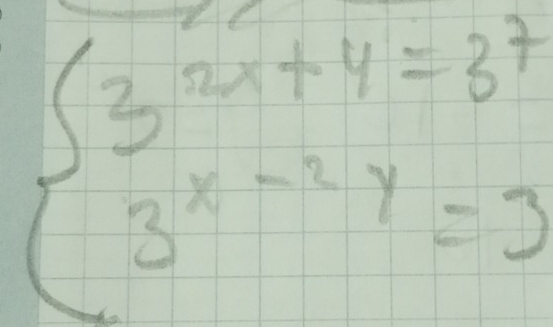 3^{2x+y} = 3^7
3^{x-2y} = 3